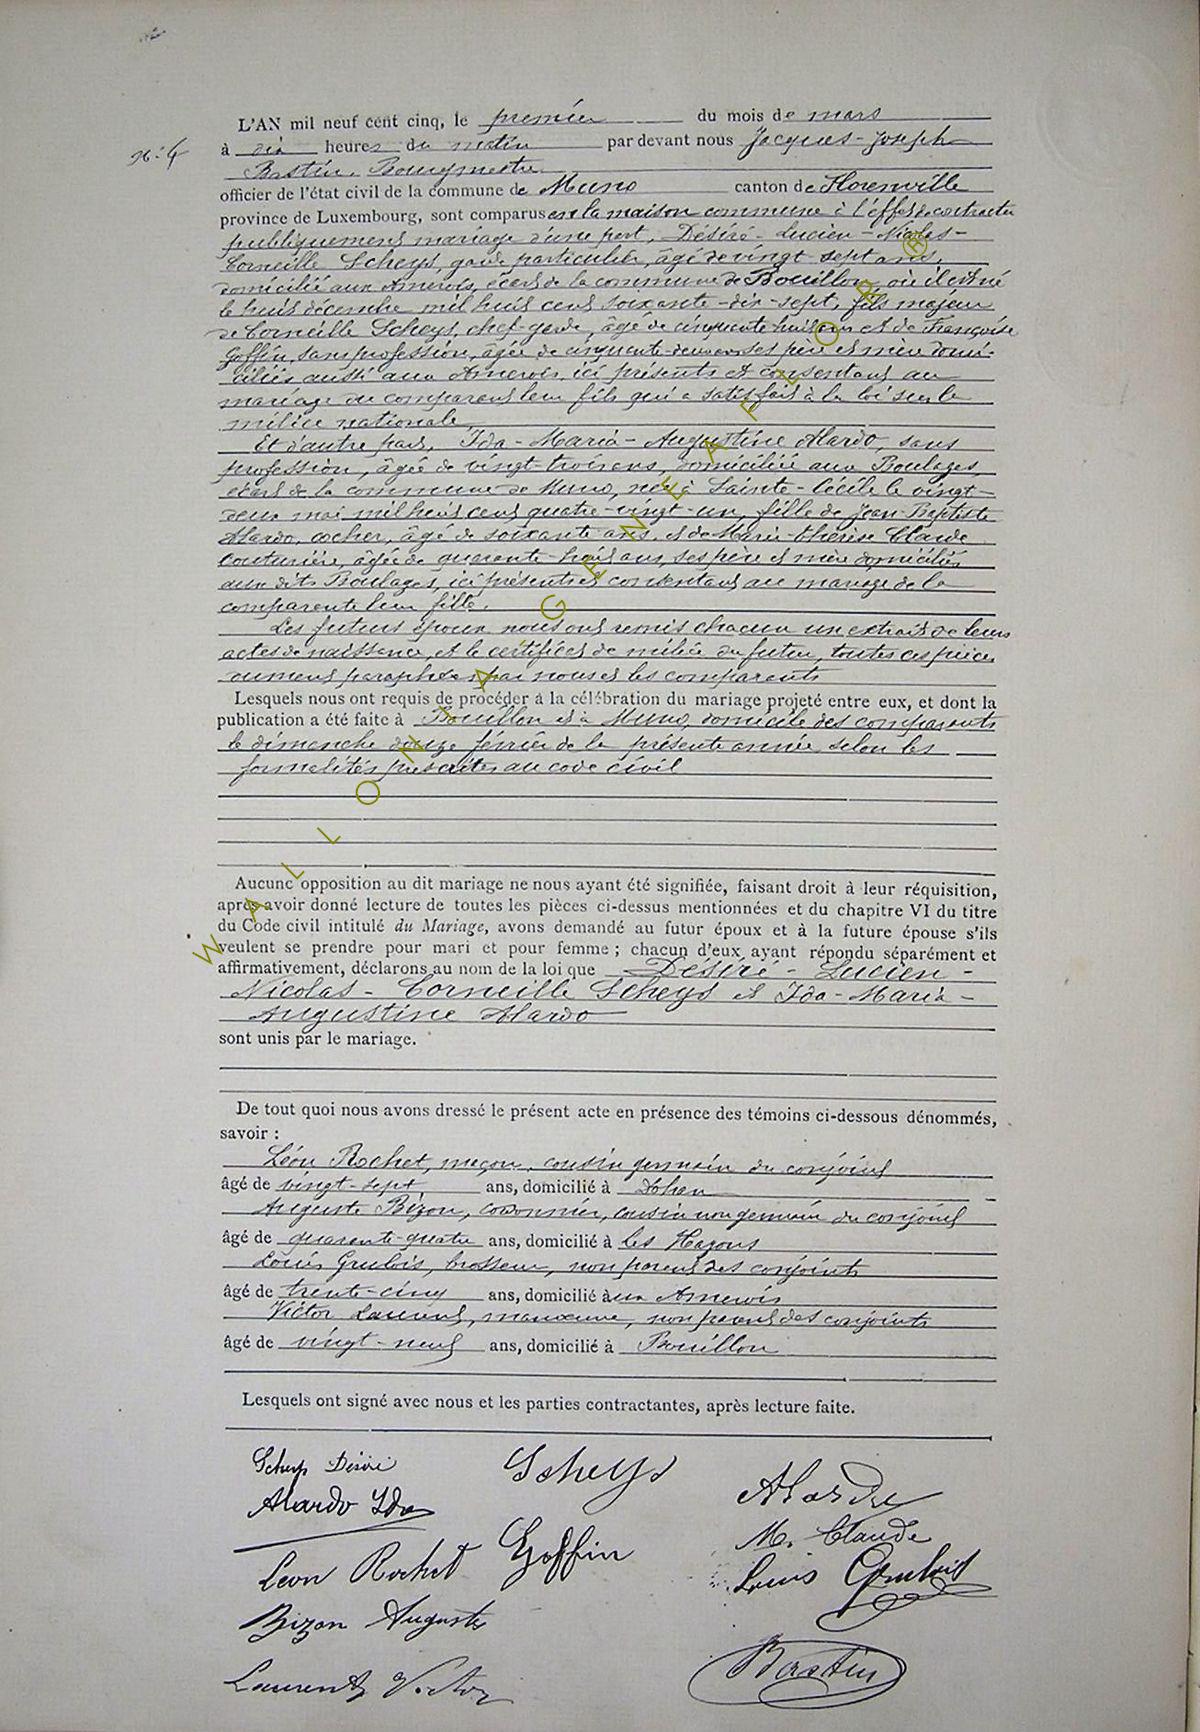 L'AN mil neuf cent cinq, le premier du mois de mars
N° 4
à dix heures du matin par devant nous Jacques-Joseph
Bastin, Bourgmestre
officier de l'état civil de la commune de Muno canton de Florenville
province de Luxembourg, sont comparus en la maison commune à l'effet de contracter
publiquement mariage d'une part, Désiré-Lucien-Nicolas-
Corneille Scheys, garde particulier, âgé de vingt-sept ans,
domicilié aux Amerois, écart de la commune de Bouillon, où il est né
le huit décembre mil huit cent soixante-dix-sept, fils majeur
de Corneille Scheys, chef-garde, âgé de cinquante huit ans et de Françoise
Goffin, sans profession, âgée de cinquante-deux ans ses père et mère domi-
ciliés aussi aux Amerois, ici présents et consentant au
mariage du comparant leur fils qui a satisfait à la loi sur la
milice nationale,
Et d'autre part, Ida-Maria-Augustine Alardo, sans
profession, âgée de vingt-trois ans, domiciliée aux Boulages,
écart de la commune de Muno, née à Sainte-Cécile le vingt-
deux mai mil huit cent quatre-vingt-un, fille de Jean-Baptiste
Alardo, cocher, âgé de soixante ans, et de Marie-Thérèse Claude
couturière, âgée de quarante-huit ans, ses père et mère domiciliés
aux dits Boulages, ici présents et consentant au mariage de la
comparante leur fille.
Les futurs époux nous ont remis chacun un extrait de leurs
actes de naissance, et le certificat de milice du futur, toutes ces pièces
dûment paraphées par nous et les comparants
Lesquels nous ont requis de procéder à la célébration du mariage projeté entre eux, et dont la
publication a été faite à Bouillon et à Muno, domicile des comparants
le dimanche douze février de la présente année selon les
formalités préscrites au code civil
Aucune opposition au dit mariage ne nous ayant été signifiée, faisant droit à leur réquisition,
après avoir donné lecture de toutes les pièces ci-dessus mentionnées et du chapitre VI du titre
du Code civil intitulé du Mariage, avons demandé au futur époux et à la future épouse s'ils
veulent se prendre pour mari et pour femme ; chacun d'eux ayant répondu séparément et
affirmativement, déclarons au nom de la loi que Désiré-Lucien-
Nicolas-Corneille Scheys et Ida-Maria-
Augustine Alardo
sont unis par le mariage.
De tout quoi nous avons dressé le présent acte en présence des témoins ci-dessous dénommés,
savoir :
Léon Rochet, maçon, cousin germain du conjoint
âgé de vingt-sept ans, domicilié à Dohan
Auguste Bizon, cordonnier, cousin non germain du conjoint
âgé de quarante-quatre ans, domicilié à les Hayons
Louis Grulois, brosseur, non parent des conjoints
âgé de trente-cinq ans, domicilié à ux Amerois
Victor Laurent, manœuvre, non parent des conjoints
âgé de vingt-neuf ans, domicilié à Bouillon
Lesquels ont signé avec nous et les parties contractantes, après lecture faite.
Scheys Désiré Scheys Alardo
Alardo Ida M. Claude
Léon Rochet Goffin Louis Grulois
Bizon Auguste
Laurent Victor Bastin
WALLONIA GENEAFLOR ®